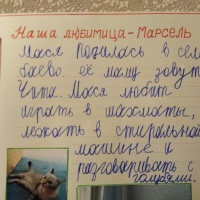 Наша любимица - Марсель
Мася родилась в сел
боево. её маму зовут
Чита. Мася любит
играть в шахматы,
лежать в стиральной
машине и
разговаривать с
голубями.